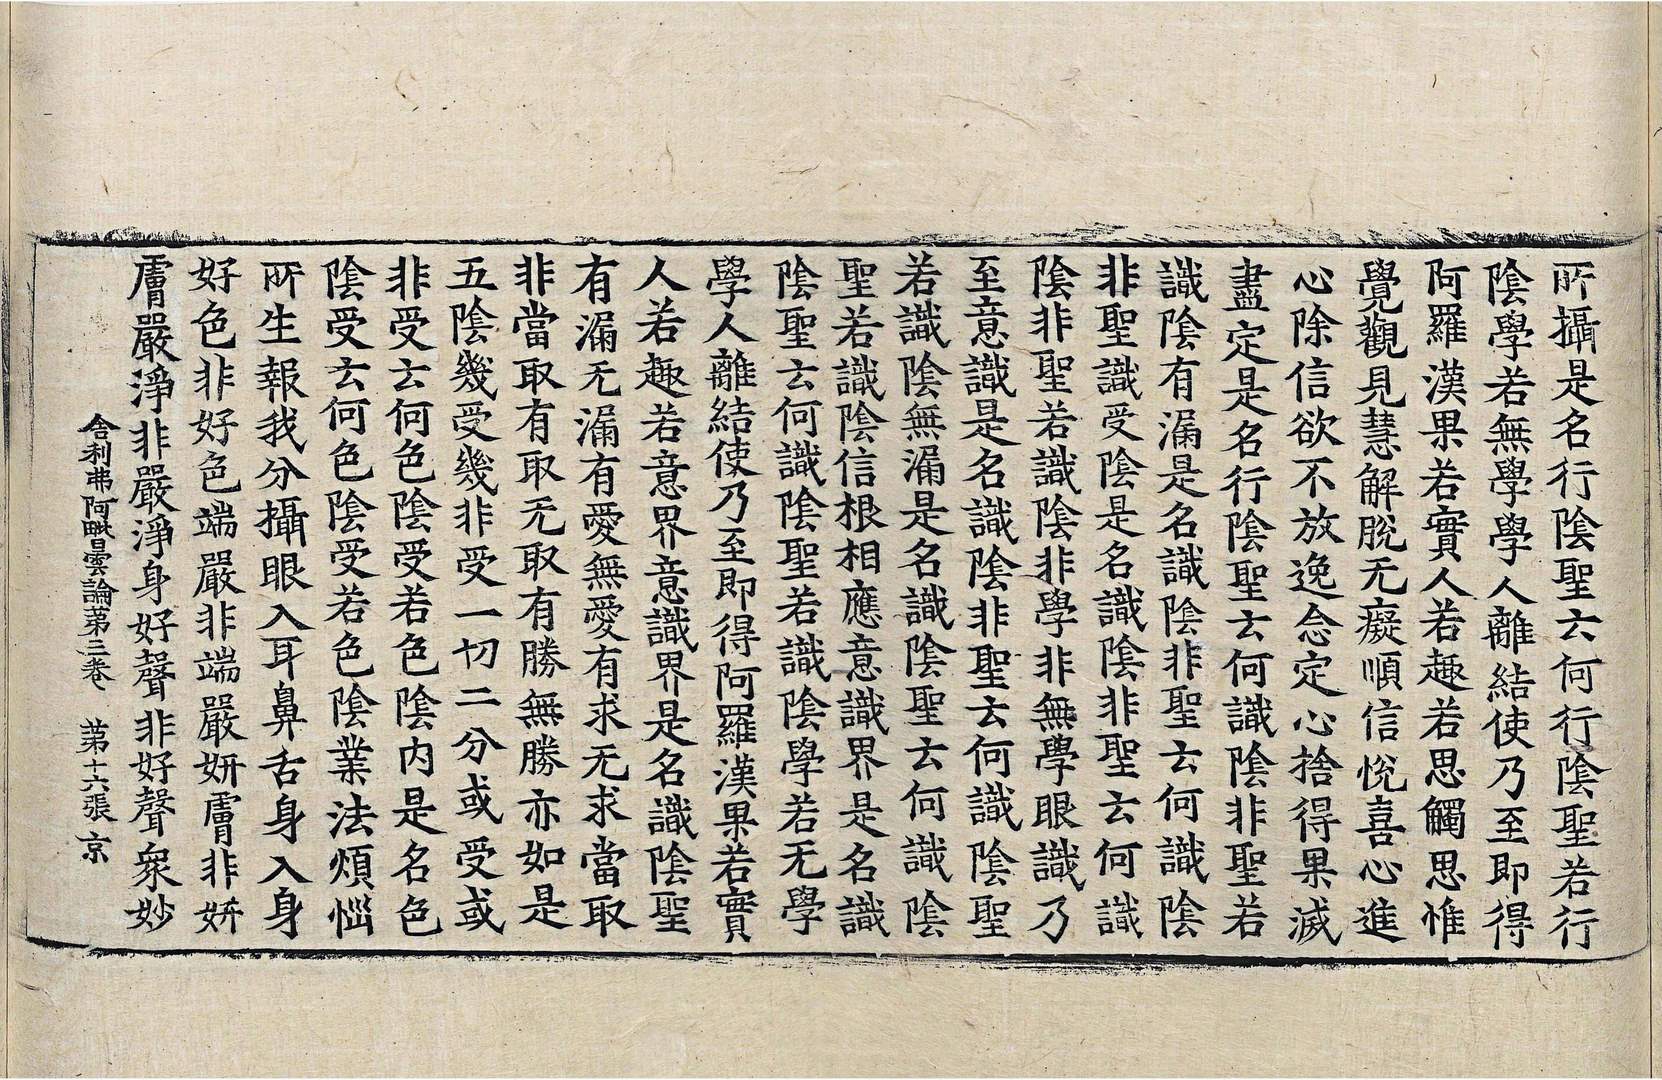 所攝是名行陰聖云何行陰聖若行
陰學若無學學人離結使乃至即得
阿羅漢果若實人若趣若思觸思惟
覺觀見慧解脫无癡順信悅喜心進
心除信欲不放逸念定心捨得果滅
盡定是名行陰聖云何識陰非聖若
識陰有漏是名識陰非聖云何識陰
非聖識受陰是名識陰非聖云何識
陰非聖若識陰非學非無學眼識乃
至意識是名識陰非聖云何識陰聖
若識陰無漏是名識陰聖云何識陰
聖若識陰信根相應意識界是名識
陰聖云何識陰聖若識陰學若无學
學人離結使乃至即得阿羅漢果若實
人若趣若意界意識界是名識陰聖
有漏无漏有愛無愛有求无求當取
非當取有取无取有勝無勝亦如是
五陰幾受幾非受一切二分或受或
非受云何色陰受若色陰内是名色
陰受云何色陰受若色陰業法煩惱
所生報我分攝眼入耳鼻舌身入身
好色非好色端嚴非端嚴妍膚非妍
膚嚴淨非嚴淨身好聲非好聲衆妙
舍利弗阿毗曇論第三卷 第十六張 京